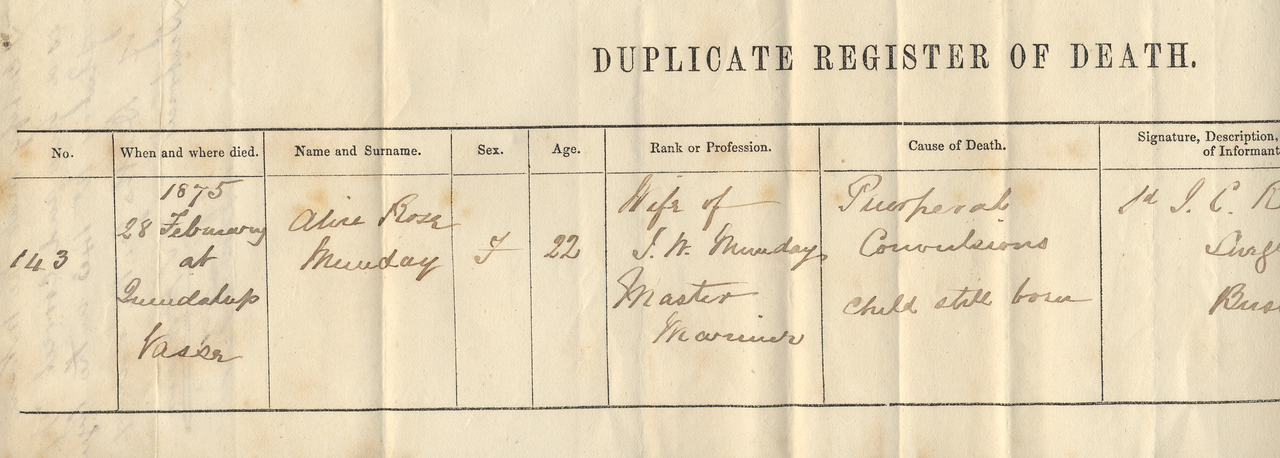 DUPLICATE REGISTER OF DEATH.
No.
When and where died.
Name and Surname.
Sex.
Age.
Rank or Profession.
Cause of Death.
Signature, Description,
of Informant
143
1875
28 February
at
Quindalup
Vasse
Alice Rose
Munday
F
22
Wife of
J. W. Munday
Master
Mariner
Puerperal
Convulsions
Child still born
J. C. R
Surg
Bus